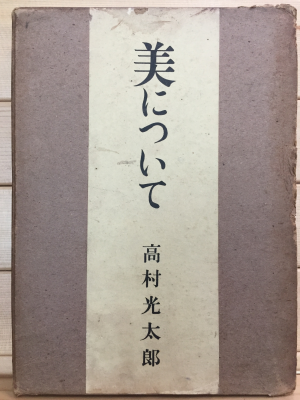 美について
高村光太郎